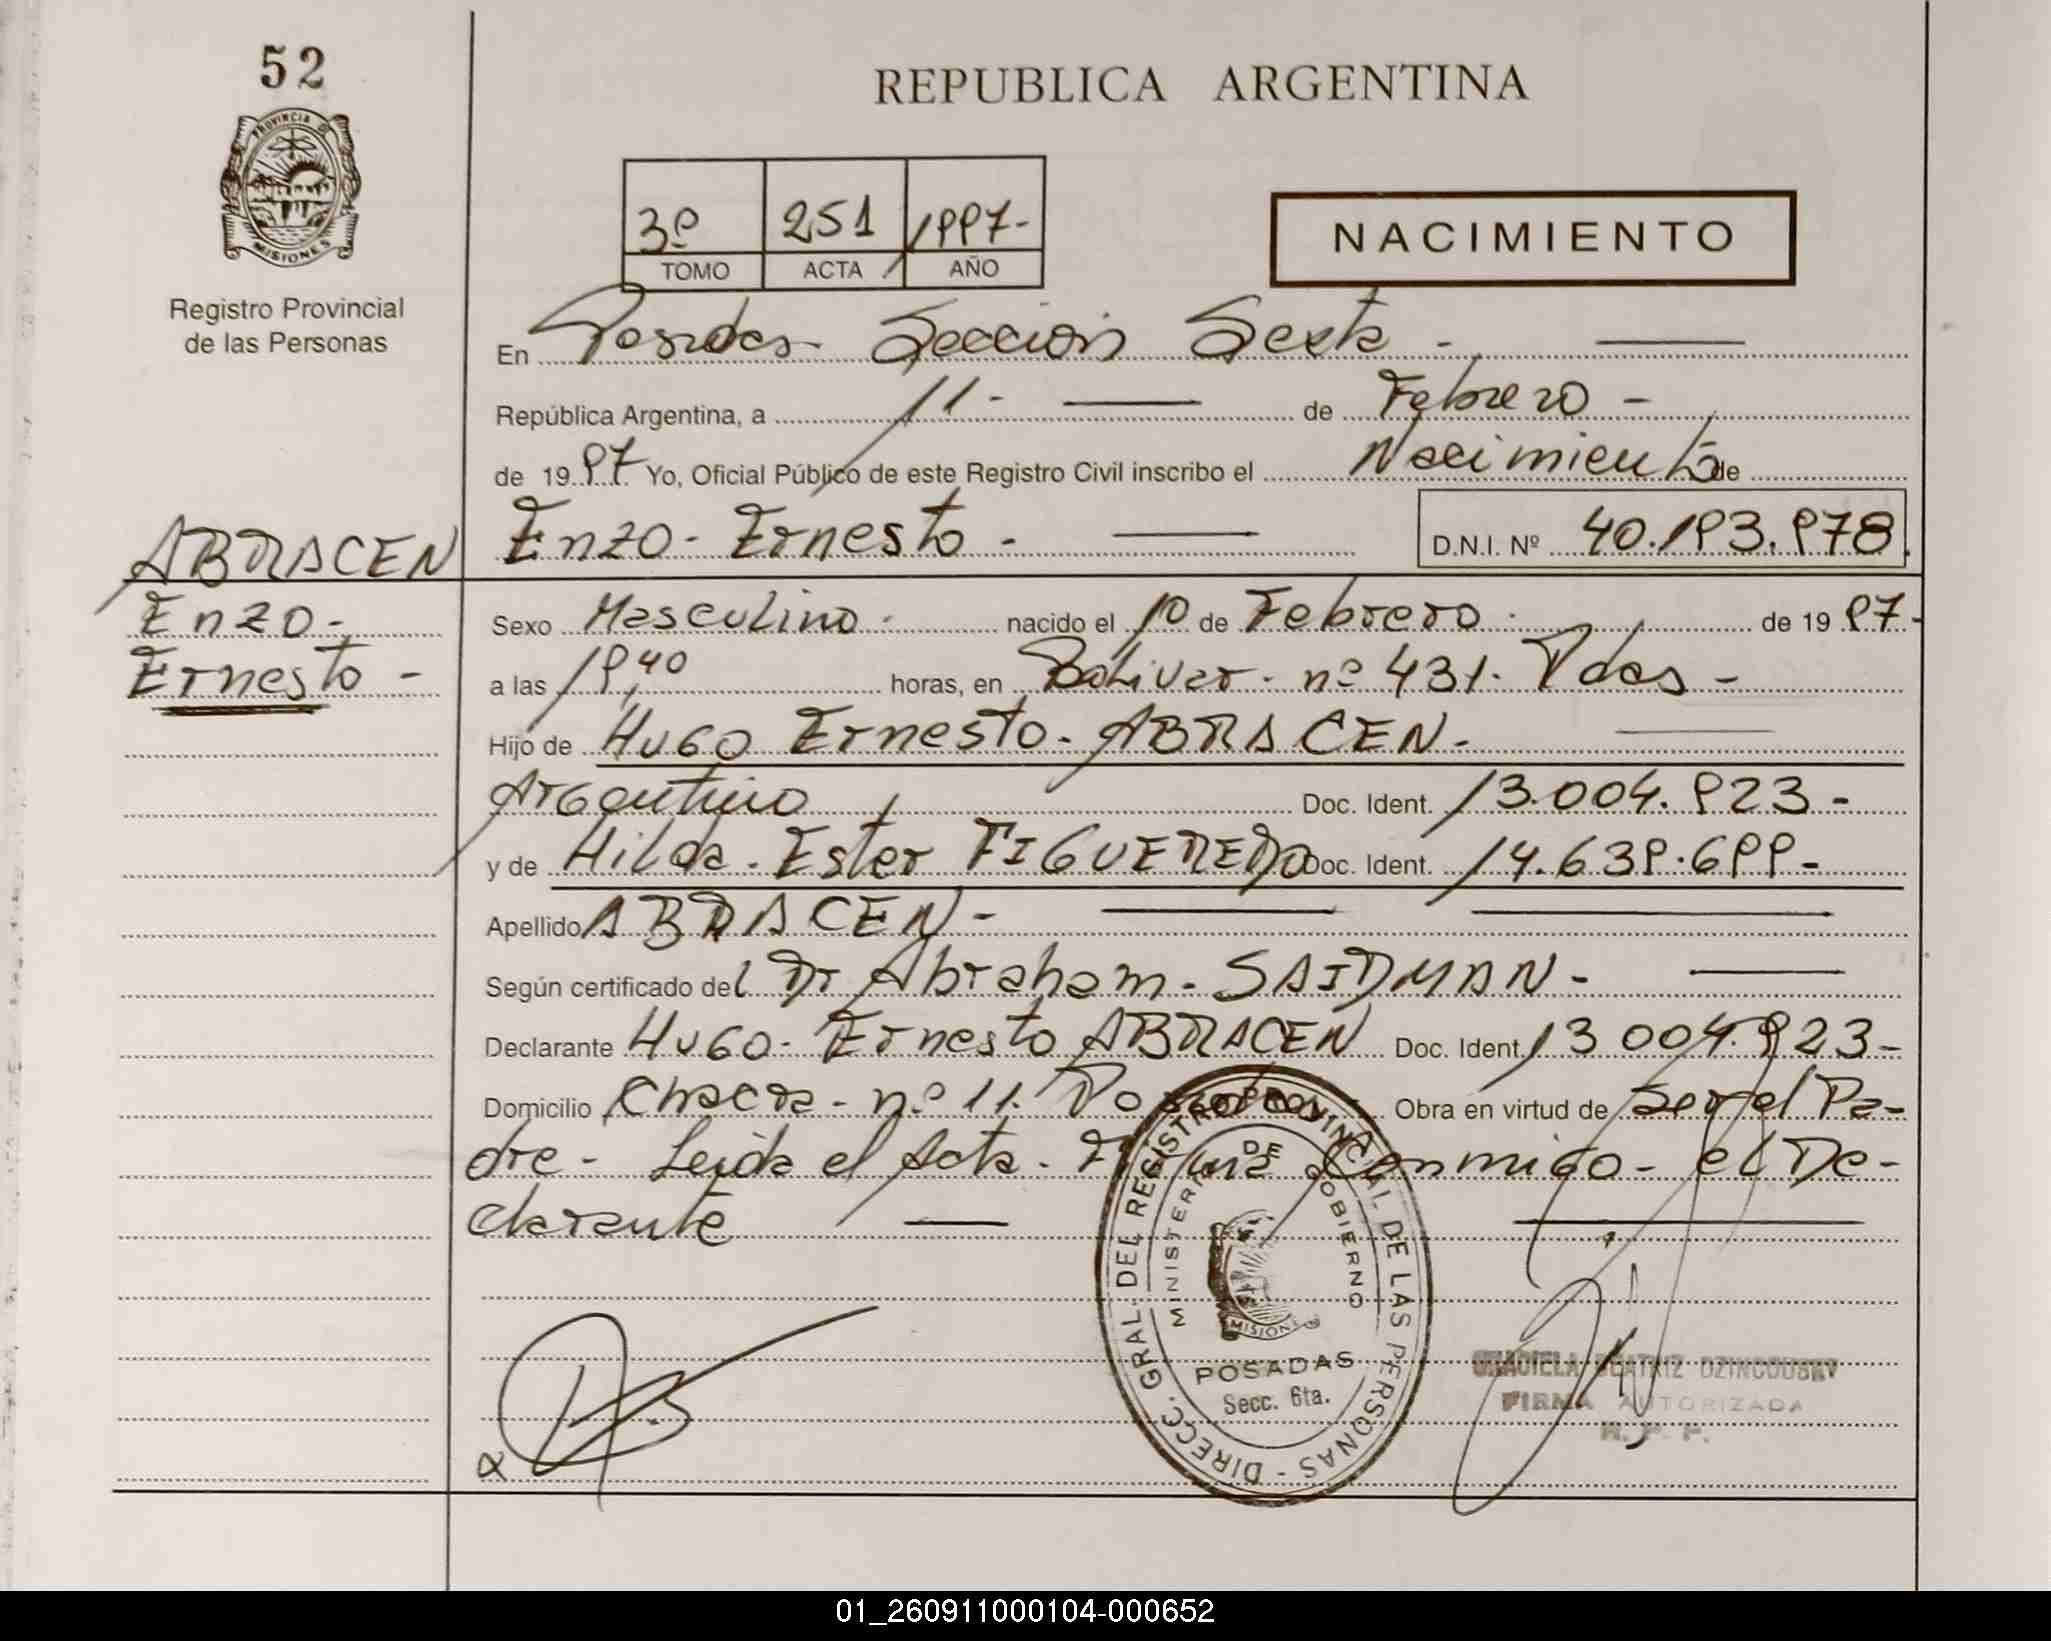 52
PROVINCIA DE
MISIONES
Registro Provincial
de las Personas
REPUBLICA ARGENTINA
3º 251 1997-
TOMO ACTA AÑO
NACIMIENTO
En Posadas- Sección Sexta -
República Argentina, a 11- de Febrero -
de 1997 Yo, Oficial Público de este Registro Civil inscribo el Nacimiento de
ABRACEN Enzo- Ernesto - D.N.I. Nº 40.193.978
Enzo- Sexo Masculino. nacido el 10 de Febrero. de 1997-
Ernesto - a las 19,40 horas, en Bolivar- nº 431. Pdas -
Hijo de Hugo Ernesto- ABRACEN-
Argentino Doc. Ident. 13.004.923-
y de Hilda- Ester FIGUEREDO Doc. Ident. 14.639.699-
Apellido ABRACEN-
Según certificado del Dr Abraham- SAIDMAN-
Declarante Hugo- Ernesto ABRACEN Doc. Ident. 13 004.923-
Domicilio Chacra- nº 11. Posadas Obra en virtud de Ser el Pa-
dre- Leida el Acta- Firma Conmigo- el De-
clarante
DIRECC. GRAL. DEL REGISTRO PROVINCIAL DE LAS PERSONAS -
MINISTERIO DE GOBIERNO
MISIONES
POSADAS
Secc. 6ta.
GRACIELA BEATRIZ
FIRMA AUTORIZADA
R. P. P.
01_260911000104-000652